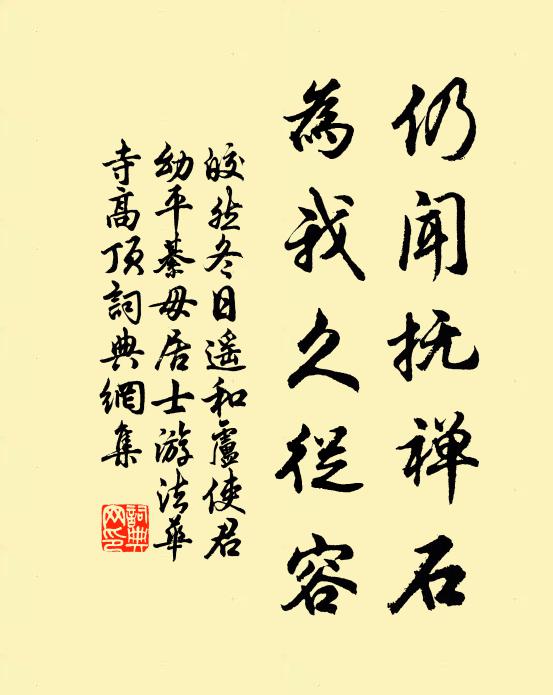 仍闻抚禅石
為我久從容
皎然冬日遥和盧使君
幼平綦毋居士游法華
寺高頂詞典網集
詞典
网印